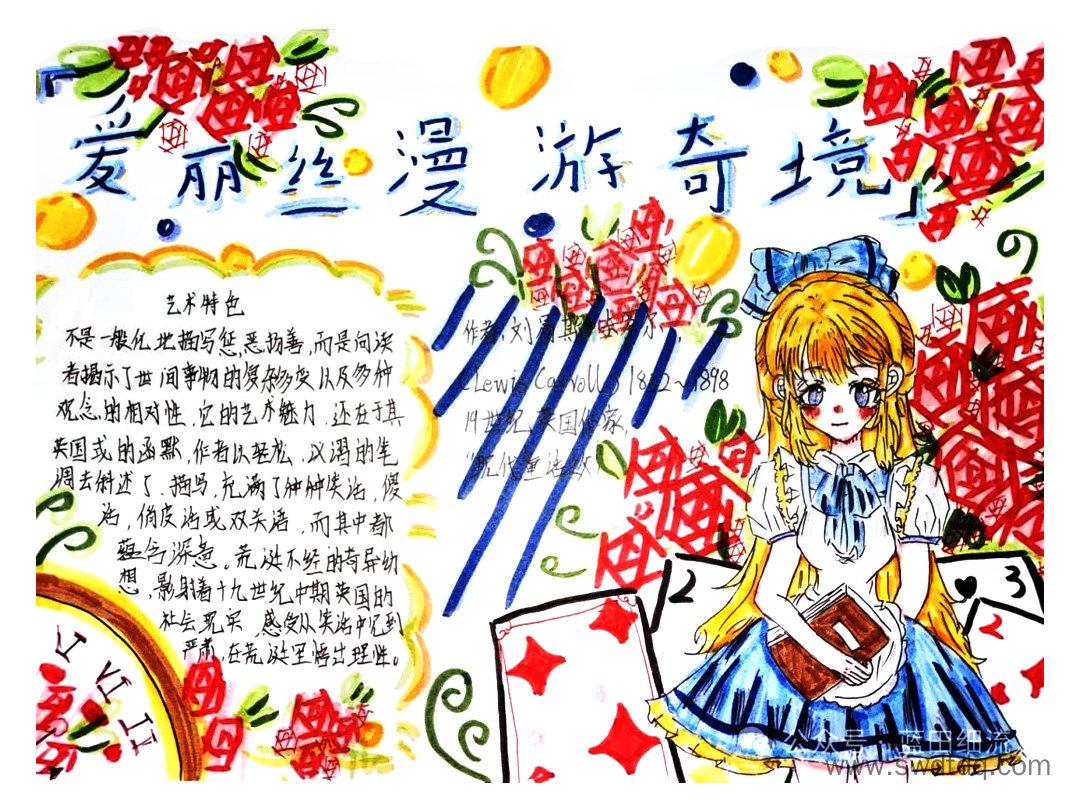 爱丽丝漫游奇境
艺术特色
不是一般化地描写惩恶扬善,而是向读
者揭示了世间事物的复杂多变以及多种
观念的相对性。它的艺术魅力,还在于其
英国式的幽默,作者以轻松、诙谐的笔
调去叙述了、描写,充满了种种笑话,傻
话,俏皮话或双关语,而其中都
蕴含深意。荒诞不经的奇异幻
想,影射着十九世纪中期英国的
社会现实,感受从笑话中见到
严肃,在荒诞里悟出理性。
作者,刘易斯·卡罗尔,
(Lewis Carroll) 1832~1898
19世纪英国作家,
"现代童话
2
3
2
V
VI
VII
公众号 蓝田细流